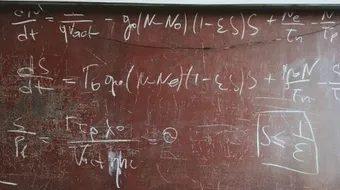 dN/dt = I/qVact - g₀(N-N₀)(1-εS)S + Nₑ/τₙ - N/τₚ
dS/dt = Γ₀g₀(N-N₀)(1-εS)S + N/τₙ - S/τₚ
S/Pf = Γτₚλ₀/Vactηhc =
S ≤ 1/ε